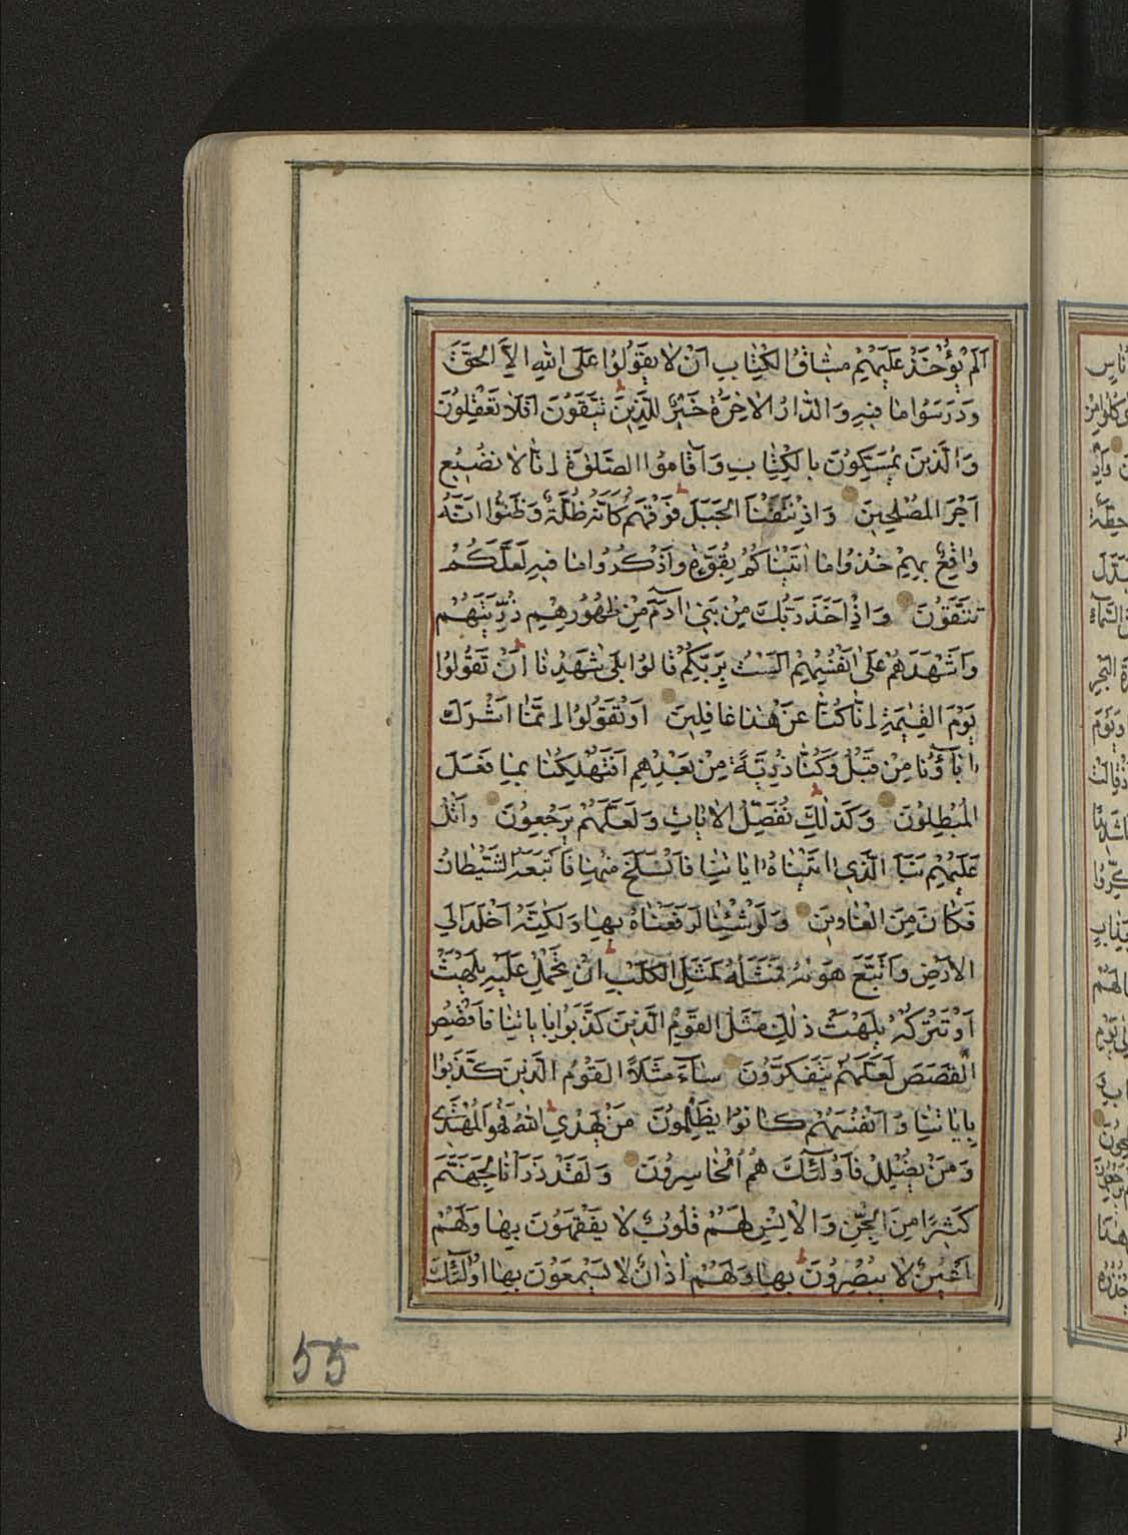 اَلَمْ يُؤْخَذْ عَلَيْهِمْ مِيثَاقُ الْكِتَابِ اَنْ لَا يَقُولُوا عَلَى اللهِ اِلَّا الْحَقَّ
وَدَرَسُوا مَا فِيهِ وَالدَّارُ الْاٰخِرَةُ خَيْرٌ لِلَّذِينَ يَتَّقُونَ اَفَلَا تَعْقِلُونَ
وَالَّذِينَ يُمَسِّكُونَ بِالْكِتَابِ وَاَقَامُوا الصَّلٰوةَ اِنَّا لَا نُضِيعُ
اَجْرَ الْمُصْلِحِينَ وَاِذْ نَتَقْنَا الْجَبَلَ فَوْقَهُمْ كَاَنَّهُ ظُلَّةٌ وَظَنُّوا اَنَّهُ
وَاقِعٌ بِهِمْ خُذُوا مَا اٰتَيْنَاكُمْ بِقُوَّةٍ وَاذْكُرُوا مَا فِيهِ لَعَلَّكُمْ
تَتَّقُونَ وَاِذْ اَخَذَ رَبُّكَ مِنْ بَنِي اٰدَمَ مِنْ ظُهُورِهِمْ ذُرِّيَّتَهُمْ
وَاَشْهَدَهُمْ عَلٰى اَنْفُسِهِمْ اَلَسْتُ بِرَبِّكُمْ قَالُوا بَلٰى شَهِدْنَا اَنْ تَقُولُوا
يَوْمَ الْقِيٰمَةِ اِنَّا كُنَّا عَنْ هٰذَا غَافِلِينَ اَوْ تَقُولُوا اِنَّمَا اَشْرَكَ
اٰبَاؤُنَا مِنْ قَبْلُ وَكُنَّا ذُرِّيَّةً مِنْ بَعْدِهِمْ اَفَتُهْلِكُنَا بِمَا فَعَلَ
الْمُبْطِلُونَ وَكَذٰلِكَ نُفَصِّلُ الْاٰيَاتِ وَلَعَلَّهُمْ يَرْجِعُونَ وَاتْلُ
عَلَيْهِمْ نَبَاَ الَّذِي اٰتَيْنَاهُ اٰيَاتِنَا فَانْسَلَخَ مِنْهَا فَاَتْبَعَهُ الشَّيْطَانُ
فَكَانَ مِنَ الْغَاوِينَ وَلَوْ شِئْنَا لَرَفَعْنَاهُ بِهَا وَلٰكِنَّهُ اَخْلَدَ اِلَى
الْاَرْضِ وَاتَّبَعَ هَوٰيهُ فَمَثَلُهُ كَمَثَلِ الْكَلْبِ اِنْ تَحْمِلْ عَلَيْهِ يَلْهَثْ
اَوْ تَتْرُكْهُ يَلْهَثْ ذٰلِكَ مَثَلُ الْقَوْمِ الَّذِينَ كَذَّبُوا بِاٰيَاتِنَا فَاقْصُصِ
الْقَصَصَ لَعَلَّهُمْ يَتَفَكَّرُونَ سَاءَ مَثَلًا الْقَوْمُ الَّذِينَ كَذَّبُوا
بِاٰيَاتِنَا وَاَنْفُسَهُمْ كَانُوا يَظْلِمُونَ مَنْ يَهْدِي اللهُ فَهُوَ الْمُهْتَدِي
وَمَنْ يُضْلِلْ فَاُولٰئِكَ هُمُ الْخَاسِرُونَ وَلَقَدْ ذَرَاْنَا لِجَهَنَّمَ
كَثِيرًا مِنَ الْجِنِّ وَالْاِنْسِ لَهُمْ قُلُوبٌ لَا يَفْقَهُونَ بِهَا وَلَهُمْ
اَعْيُنٌ لَا يُبْصِرُونَ بِهَا وَلَهُمْ اٰذَانٌ لَا يَسْمَعُونَ بِهَا اُولٰئِكَ
55